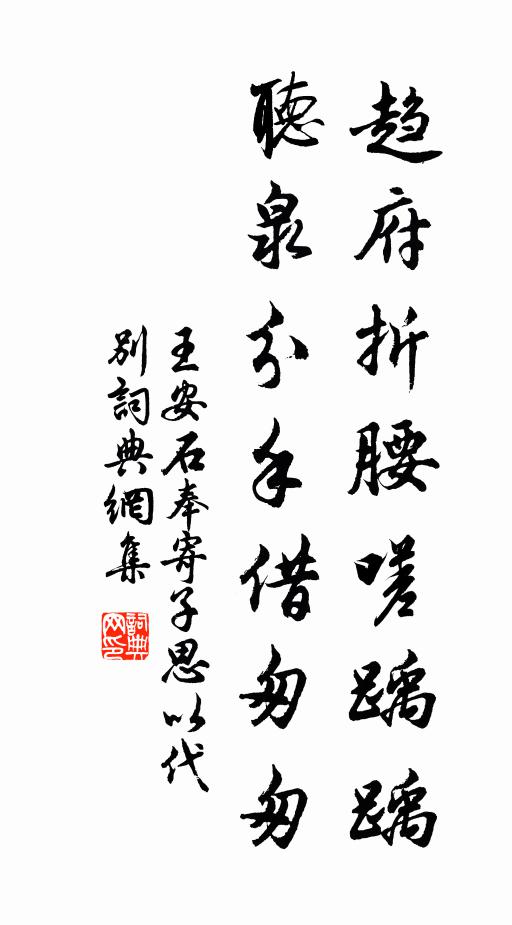 趨府折腰嗟踽踽
聽泉分手借匆匆
王安石奉寄子思以代
別詞典網集
詞典
网印